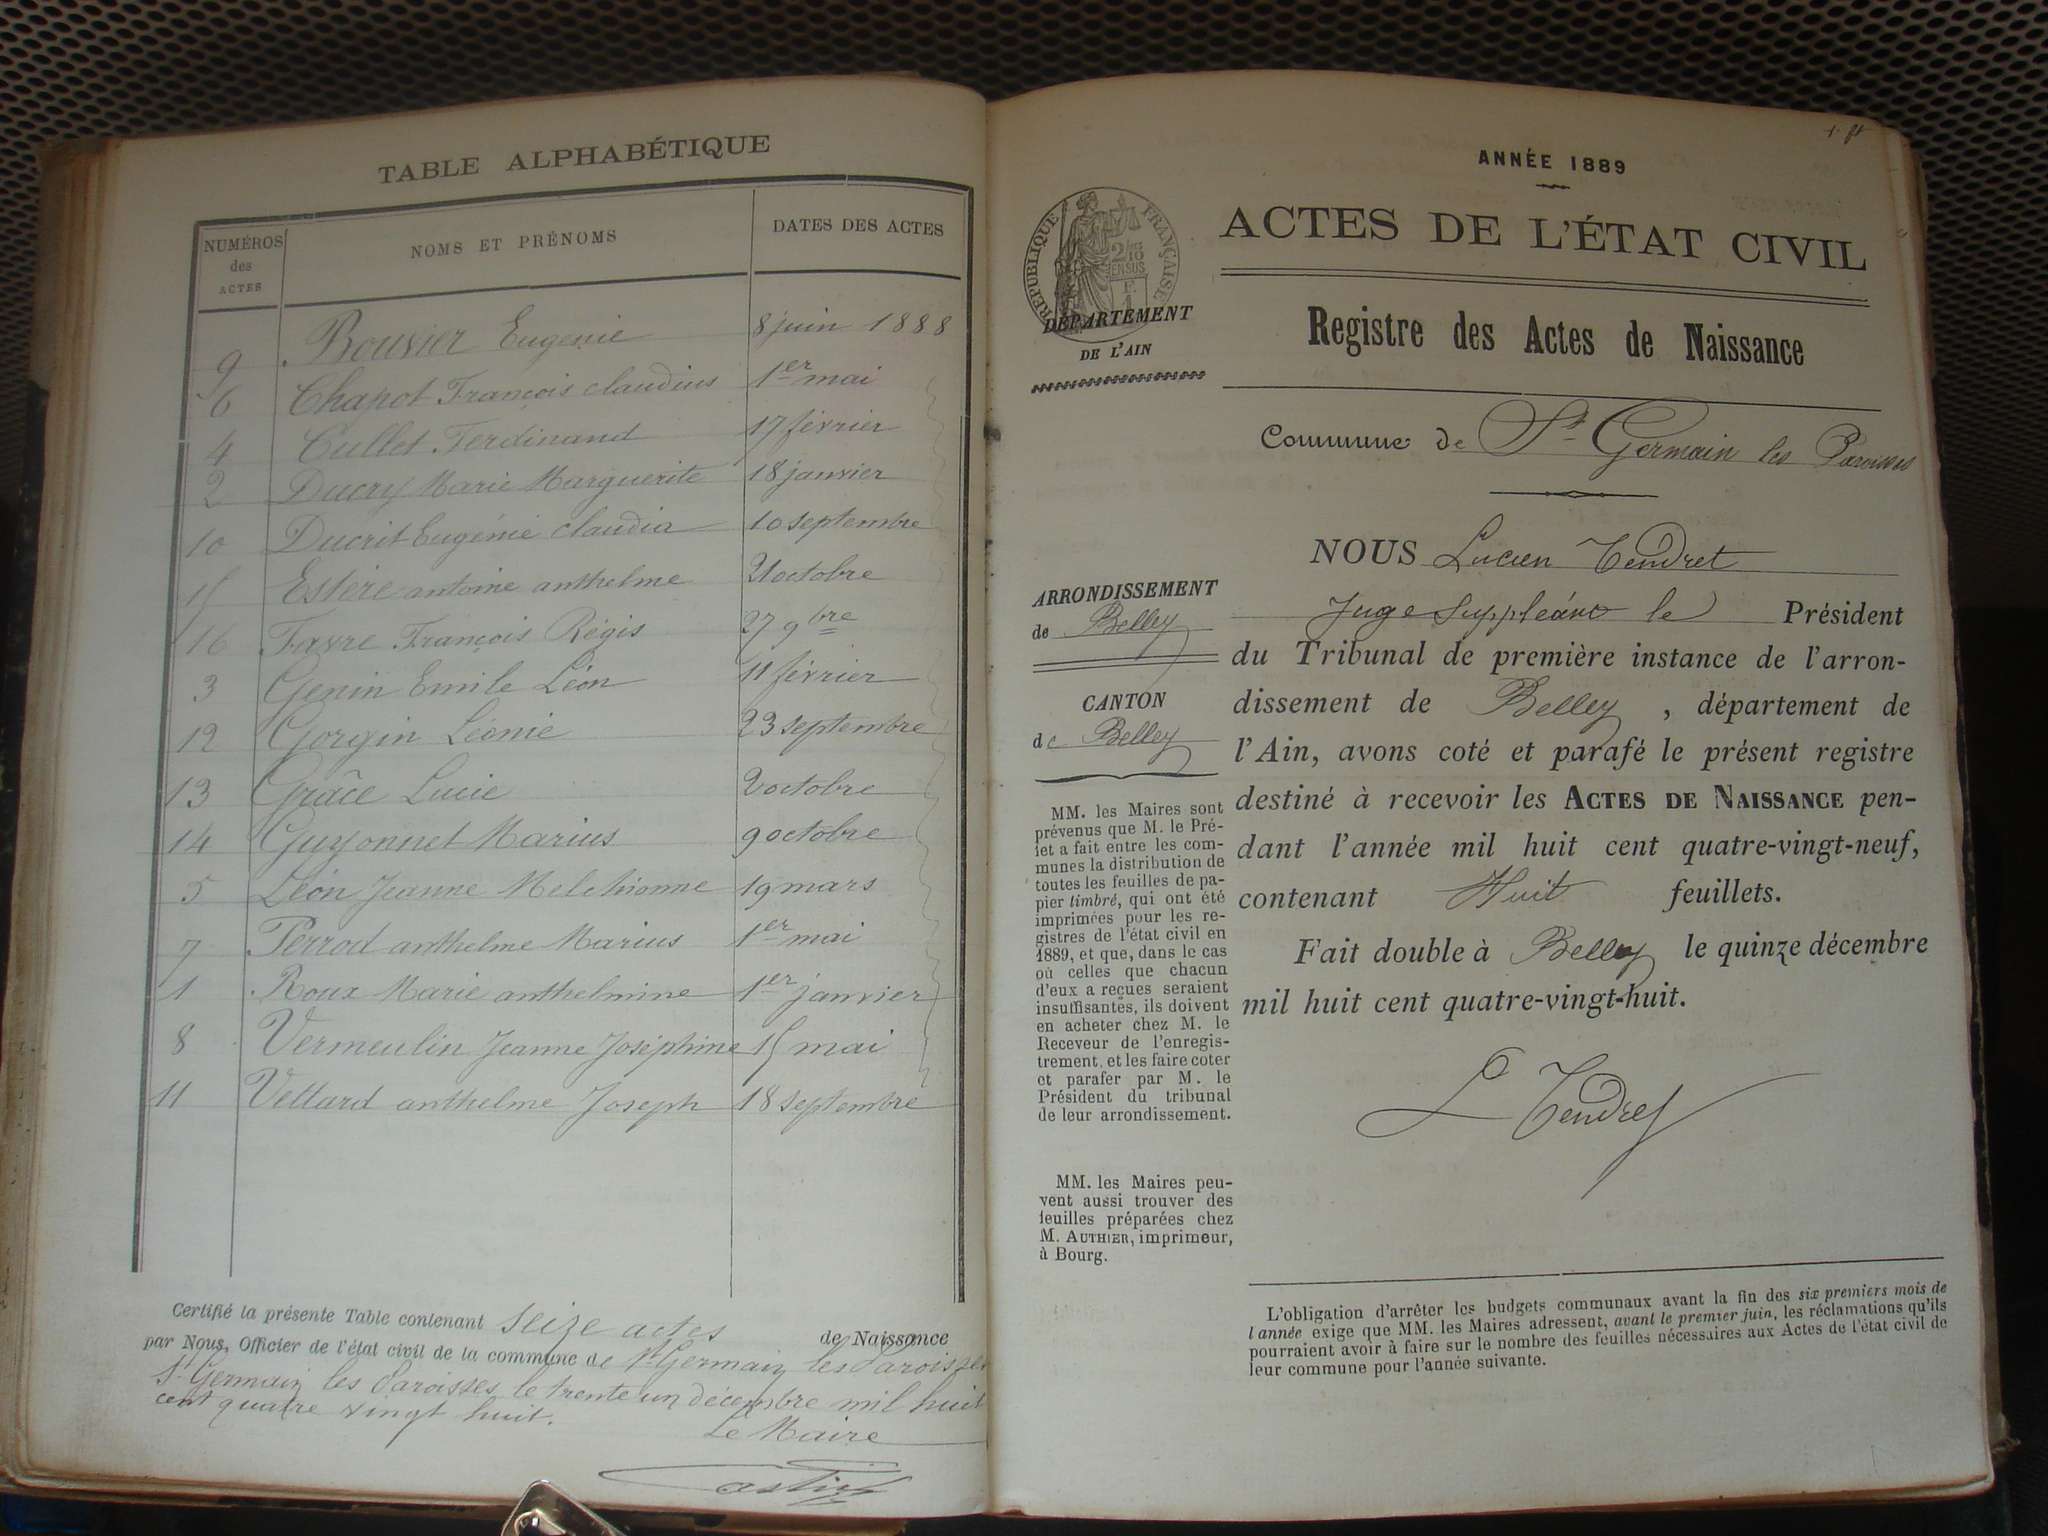 TABLE ALPHABÉTIQUE
NUMÉROS des ACTES NOMS ET PRÉNOMS DATES DES ACTES
9 Bouvier Eugénie 8 juin 1888
6 Chapot François claudius 1er mai
4 Cullet Ferdinand 17 février
2 Ducry Marie Marguerite 18 janvier
10 Ducrit Eugénie claudia 10 septembre
15 Estère antoine anthelme 21 octobre
16 Favre François Régis 27 9bre
3 Genin Emile Léon 11 février
12 Gorgin Léonie 23 septembre
13 Grâce Lucie 2 octobre
14 Guyonnet Marius 9 octobre
5 Léon Jeanne Melchionne 19 mars
7 Perrod anthelme Marius 1er mai
1 Roux Marie anthelmine 1er janvier
8 Vermeulin Jeanne Joséphine 15 mai
11 Vettard anthelme Joseph 18 septembre
Certifié la présente Table contenant seize actes de Naissance
par Nous, Officier de l'état civil de la commune de St Germain les Paroisses
St Germain les Paroisses le trente un décembre mil huit
cent quatre vingt huit.
Le Maire
ANNÉE 1889
RÉPUBLIQUE FRANÇAISE
2/10 EN SUS
F. 1
ACTES DE L'ÉTAT CIVIL
DÉPARTEMENT
DE L'AIN
Registre des Actes de Naissance
Commune de St Germain les Paroisses
ARRONDISSEMENT
de Belley
CANTON
de Belley
MM. les Maires sont
prévenus que M. le Pré-
fet a fait entre les com-
munes la distribution de
toutes les feuilles de pa-
pier timbré, qui ont été
imprimées pour les re-
gistres de l'état civil en
1889, et que, dans le cas
où celles que chacun
d'eux a reçues seraient
insuffisantes, ils doivent
en acheter chez M. le
Receveur de l'enregis-
trement, et les faire coter
et parafer par M. le
Président du tribunal
de leur arrondissement.
MM. les Maires peu-
vent aussi trouver des
feuilles préparées chez
M. AUTHIER, imprimeur,
à Bourg.
NOUS Lucien Tendret
Juge suppléant le Président
du Tribunal de première instance de l'arron-
dissement de Belley, département de
l'Ain, avons coté et parafé le présent registre
destiné à recevoir les ACTES DE NAISSANCE pen-
dant l'année mil huit cent quatre-vingt-neuf,
contenant Huit feuillets.
Fait double à Belley le quinze décembre
mil huit cent quatre-vingt-huit.
L Tendret
L'obligation d'arrêter les budgets communaux avant la fin des six premiers mois de
l'année exige que MM. les Maires adressent, avant le premier juin, les réclamations qu'ils
pourraient avoir à faire sur le nombre des feuilles nécessaires aux Actes de l'état civil de
leur commune pour l'année suivante.